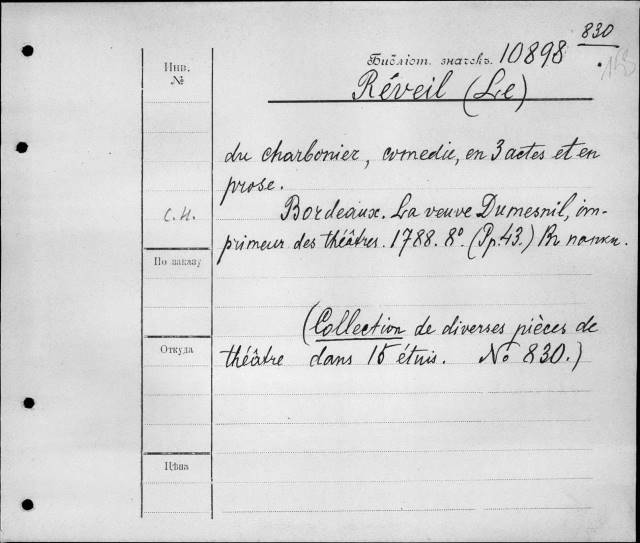 830
Инв.
№
Библіот. значекъ. 10898
Réveil (Le)
du charbonier, comedie, en 3 actes et en
prose.
С. Н.
Bordeaux. La veuve Dumesnil, im-
primeur des théâtres. 1788. 8º. (Pp. 43.) Въ папки.
По заказу
(Collection de diverses pièces de
théâtre dans 15 étuis. № 830.)
Откуда
Цѣна